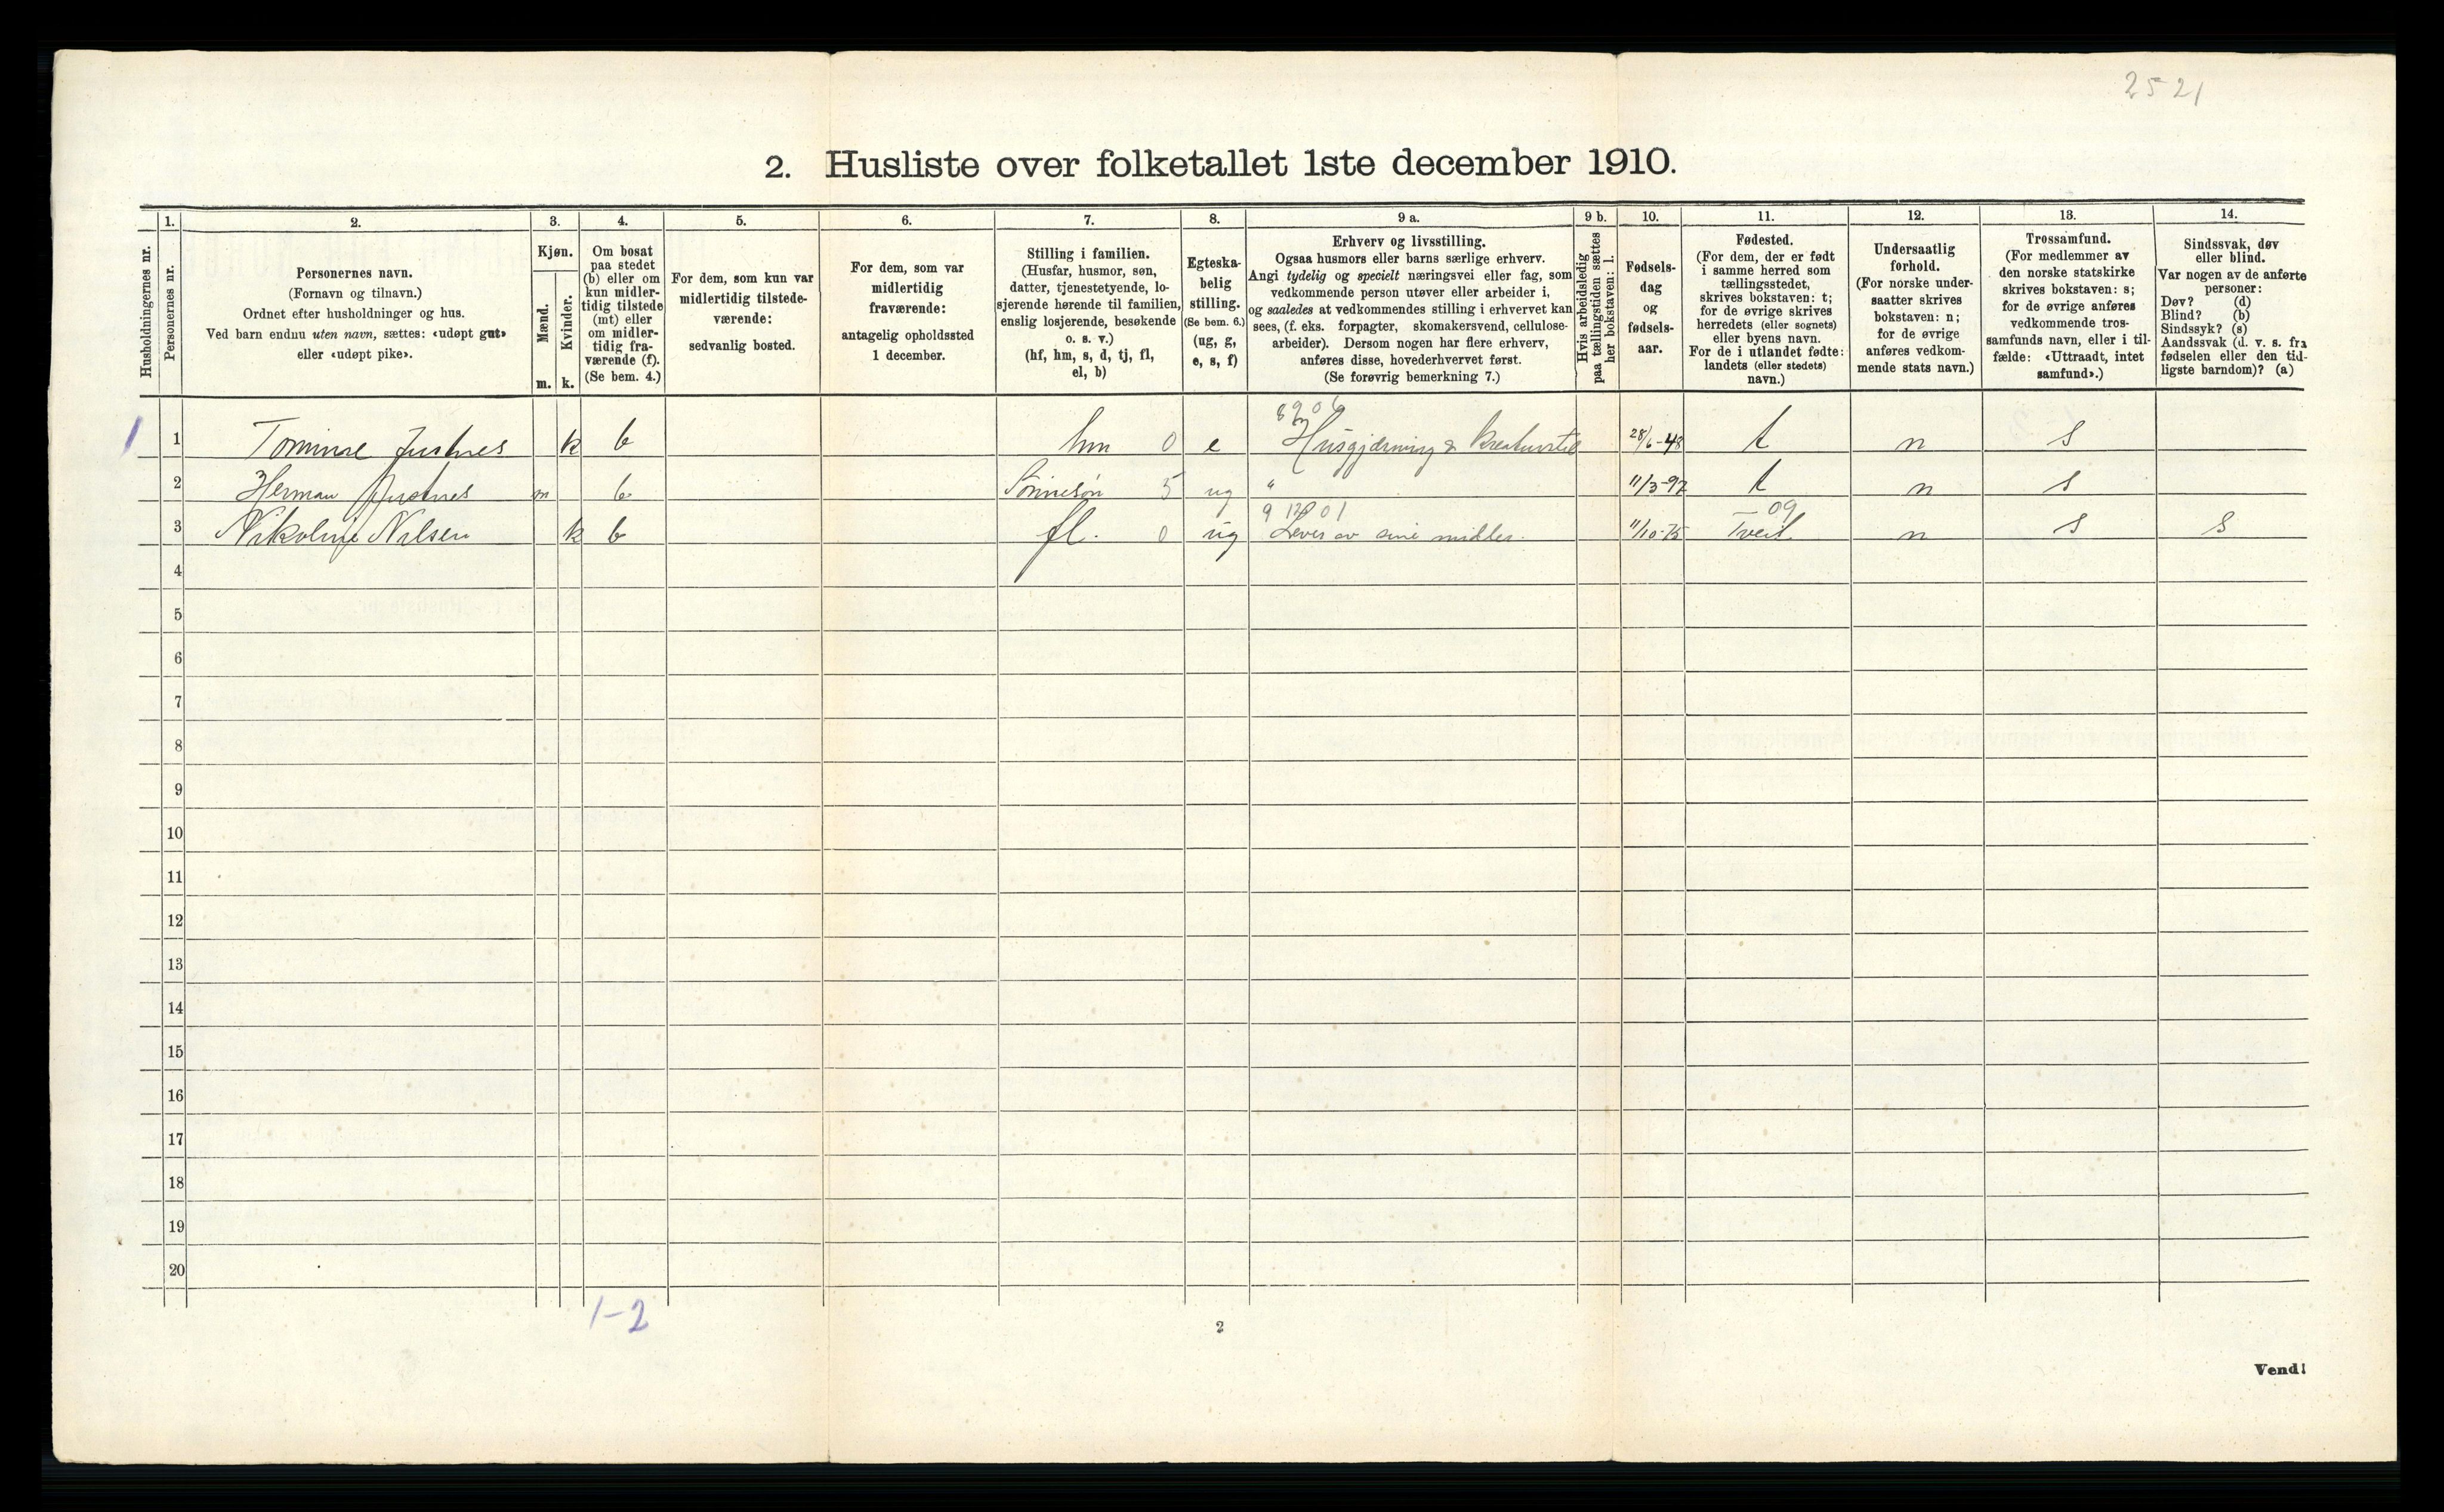 2521
2. Husliste over folketallet 1ste december 1910.
Husholdningernes nr.
1.
Personernes nr.
2.
Personernes navn.
(Fornavn og tilnavn.)
Ordnet efter husholdninger og hus.
Ved barn endnu uten navn, sættes: «udøpt gut»
eller «udøpt pike».
3.
Kjøn.
Mænd.
Kvinder.
m. k.
4.
Om bosat
paa stedet
(b) eller om
kun midler-
tidig tilstede
(mt) eller
om midler-
tidig fra-
værende (f).
(Se bem. 4.)
5.
For dem, som kun var
midlertidig tilstede-
værende:
sedvanlig bosted.
6.
For dem, som var
midlertidig
fraværende:
antagelig opholdssted
1 december.
7.
Stilling i familien.
(Husfar, husmor, søn,
datter, tjenestetyende, lo-
sjerende hørende til familien,
enslig losjerende, besøkende
o. s. v.)
(hf, hm, s, d, tj, fl,
el, b)
8.
Egteska-
belig
stilling.
(Se bem. 6.)
(ug, g,
e, s, f)
9 a.
Erhverv og livsstilling.
Ogsaa husmors eller barns særlige erhverv.
Angi tydelig og specielt næringsvei eller fag, som
vedkommende person utøver eller arbeider i,
og saaledes at vedkommendes stilling i erhvervet kan
sees, (f. eks. forpagter, skomakersvend, cellulose-
arbeider). Dersom nogen har flere erhverv,
anføres disse, hovederhvervet først.
(Se forøvrig bemerkning 7.)
9 b.
Hvis arbeidsledig
paa tællingstiden sættes
her bokstaven: l.
10.
Fødsels-
dag
og
fødsels-
aar.
11.
Fødested.
(For dem, der er født
i samme herred som
tællingsstedet,
skrives bokstaven: t;
for de øvrige skrives
herredets (eller sognets)
eller byens navn.
For de i utlandet fødte:
landets (eller stedets)
navn.)
12.
Undersaatlig
forhold.
(For norske under-
saatter skrives
bokstaven: n;
for de øvrige
anføres vedkom-
mende stats navn.)
13.
Trossamfund.
(For medlemmer av
den norske statskirke
skrives bokstaven: s;
for de øvrige anføres
vedkommende tros-
samfunds navn, eller i til-
fælde: «Uttraadt, intet
samfund».)
14.
Sindssvak, døv
eller blind.
Var nogen av de anførte
personer:
Døv? (d)
Blind? (b)
Sindssyk? (s)
Aandssvak (d. v. s. fra
fødselen eller den tid-
ligste barndom)? (a)
1 1 Tomine Justnes k b hm 0 e Husgjærning & Kreaturstel 28/6-48 t n s
2 Herman Justnes m b Sønnesøn 5 ug " 11/3-97 t n s
09
3 Nikoline Nilsen k b fl. 0 ug Lever av sine midler. 11/10-75 Tveit n s s
4
5
6
7
8
9
10
11
12
13
14
15
16
17
18
19
20
1-2
2
Vend!